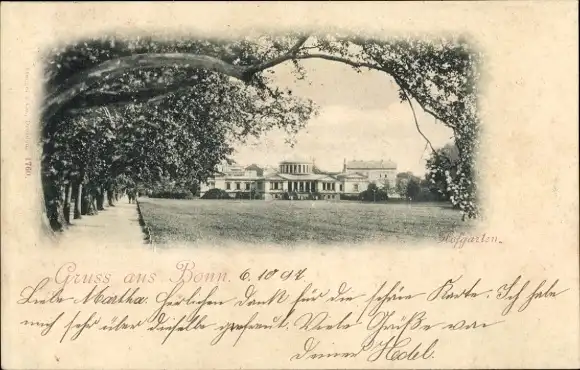 Hofgarten.
Gruss aus Bonn. 6. 10 97
Liebe Martha. Herlichen Dank für die schöne Karte. Ich habe
mich sehr über dieselbe gefreut. Viele Grüße von
Deiner Hedel.
1760.